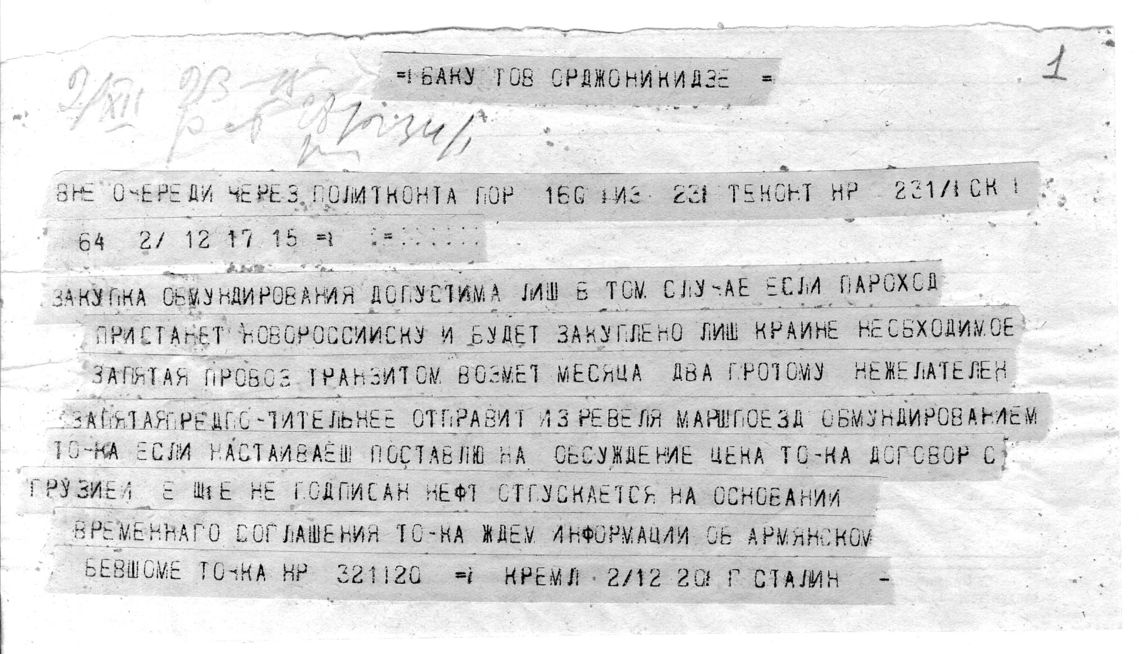 =! БАКУ ТОВ ОРДЖОНИКИДЗЕ =
1
2/XII
ВНЕ ОЧЕРЕДИ ЧЕРЕЗ ПОЛИТКОНТА ПОР 160 ИЗ 231 ТЕКОНТ НР 231/! СК !
64 2/ 12 17 15 =
ЗАКУПКА ОБМУНДИРОВАНИЯ ДОПУСТИМА ЛИШ В ТОМ СЛУ-АЕ ЕСЛИ ПАРОХОД
ПРИСТАНЕТ НОВОРОССИИСКУ И БУДЕТ ЗАКУПЛЕНО ЛИШ КРАИНЕ НЕОБХОДИМОЕ
ЗАПЯТАЯ ПРОВОЗ ТРАНЗИТОМ ВОЗМЕТ МЕСЯЦА ДВА ПОТОМУ НЕЖЕЛАТЕЛЕН
ЗАПЯТАЯ ПРЕДПО-ТИТЕЛЬНЕЕ ОТПРАВИТ ИЗ РЕВЕЛЯ МАРШПОЕЗД ОБМУНДИРОВАНИЕМ
ТО-КА ЕСЛИ НАСТАИВАЕШ ПОСТАВЛЮ НА ОБСУЖДЕНИЕ ЦЕКА ТО-КА ДОГОВОР С
ГРУЗИЕИ ЕШЕ НЕ ПОДПИСАН НЕФТ ОТПУСКАЕТСЯ НА ОСНОВАНИИ
ВРЕМЕННАГО СОГЛАШЕНИЯ ТО-КА ЖДЕМ ИНФОРМАЦИИ ОБ АРМЯНСКОМ
БЕВШОМЕ ТОЧКА НР 321120 = КРЕМЛ 2/12 20 Г СТАЛИН -